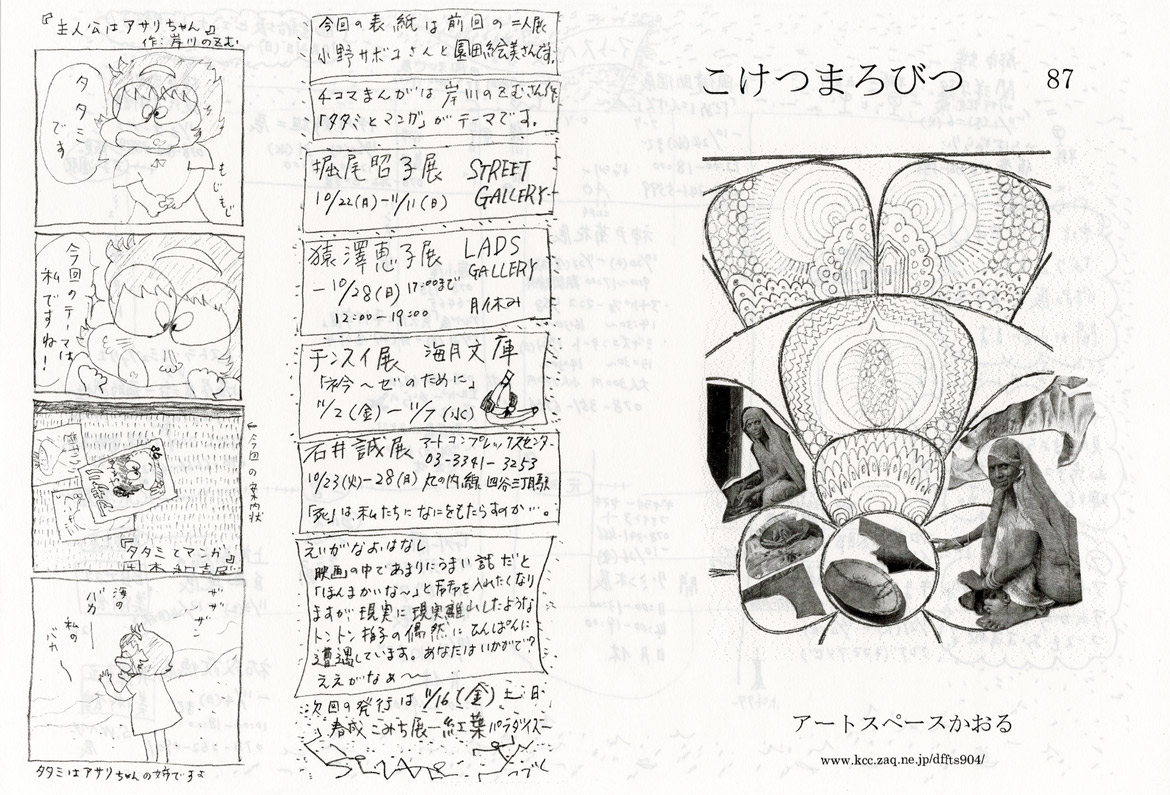 『主人公はアサリちゃん』
作:岸川のぞむ
タタミです
もじもじ
今回のテーマは
私ですね!
←今回の案内状
『タタミとマンガ』
岡本紀吉展
ザザーン
海の
バカー
私の
バカー
タタミはアサリちゃんの姉ですよ
今回の表紙は前回の二人展
小野サボコさんと園田絵美さんです。
4コマまんがは岸川のぞむさん作
「タタミとマンガ」がテーマです。
堀尾昭子展 STREET
GALLERY
10/22(月)-11/11(日)
猿澤恵子展 LADS
GALLERY
-10/28(日)17:00まで
12:00-19:00 月休み
チンスイ展 海月文庫
11/2(金)-11/7(水)
石井誠展 アートコンプレックスセンター
03-3341-3253
10/23(火)-28(日)丸の内線 四谷三丁目駅
「死」は私たちになにをもたらすのか…。
えいがなおはなし
映画の中であまりにうまい話だと
「ほんまかいな~」と茶々を入れたくなり
ますが、現実に現実離れしたような
トントン拍子の偶然にひんぱんに
遭遇しています。あなたはいかがで?
ええがなぁ~
次回の発行は11/16(金)土日
春成こみち展-紅葉パラダイス-
つづく
こけつまろびつ 87
アートスペースかおる
www.kcc.zaq.ne.jp/dffts904/